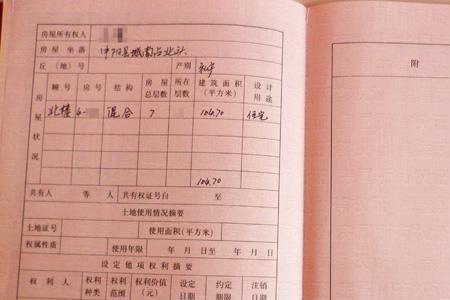 房屋所有权人
房屋坐落 中阳县城南占北头
丘(地)号 产别 私产
房屋状况
幢号 房号 结构 房屋总层数 所在层数 建筑面积(平方米) 设计用途
北楼 6- 混合 7 104.70 住宅
104.70
共有人 等 人 共有权证号自 至
土地使用情况摘要
土地证号 使用面积(平方米)
权属性质 使用年限 年 月 日至 年 月 日
设定他项权利摘要
权利人 权利种类 权利范围 权利价值(元) 设定日期 约定期限 注销日期
附